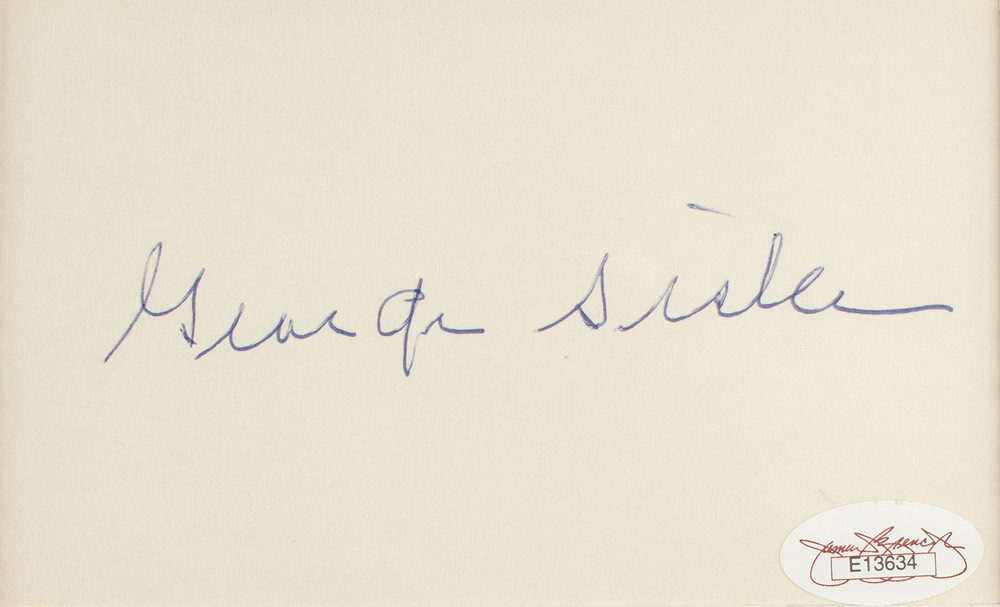 George Sisler
James Spence Jr
E13634